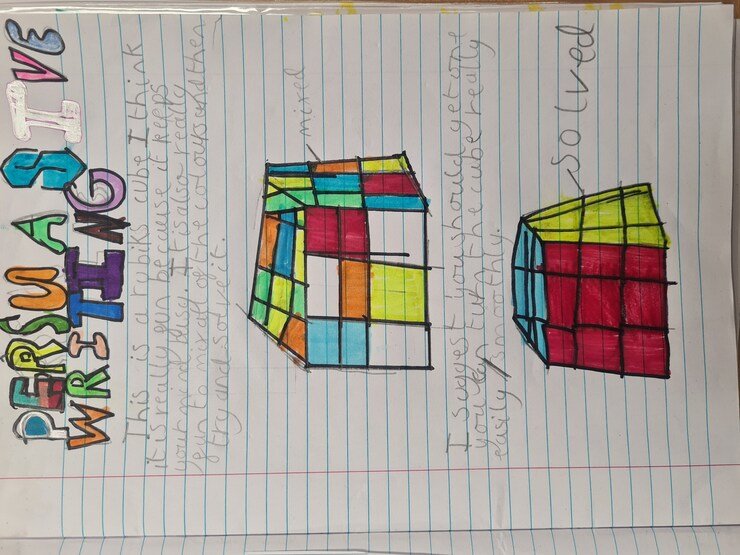 PERSUASIVE
WRITING
This is a rubiks cube I think
it is really fun because it keeps
your mind busy. It is also really
fun to mix all of the colours and then
try and solve it.
mixed
I suggest you should get one
you can turn the cube really
easily/smoothly.
solved